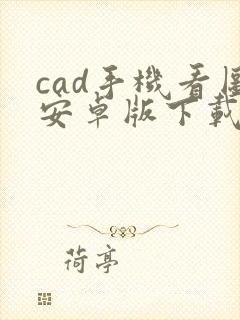 cad手機看圖
安卓版下載
荷亭